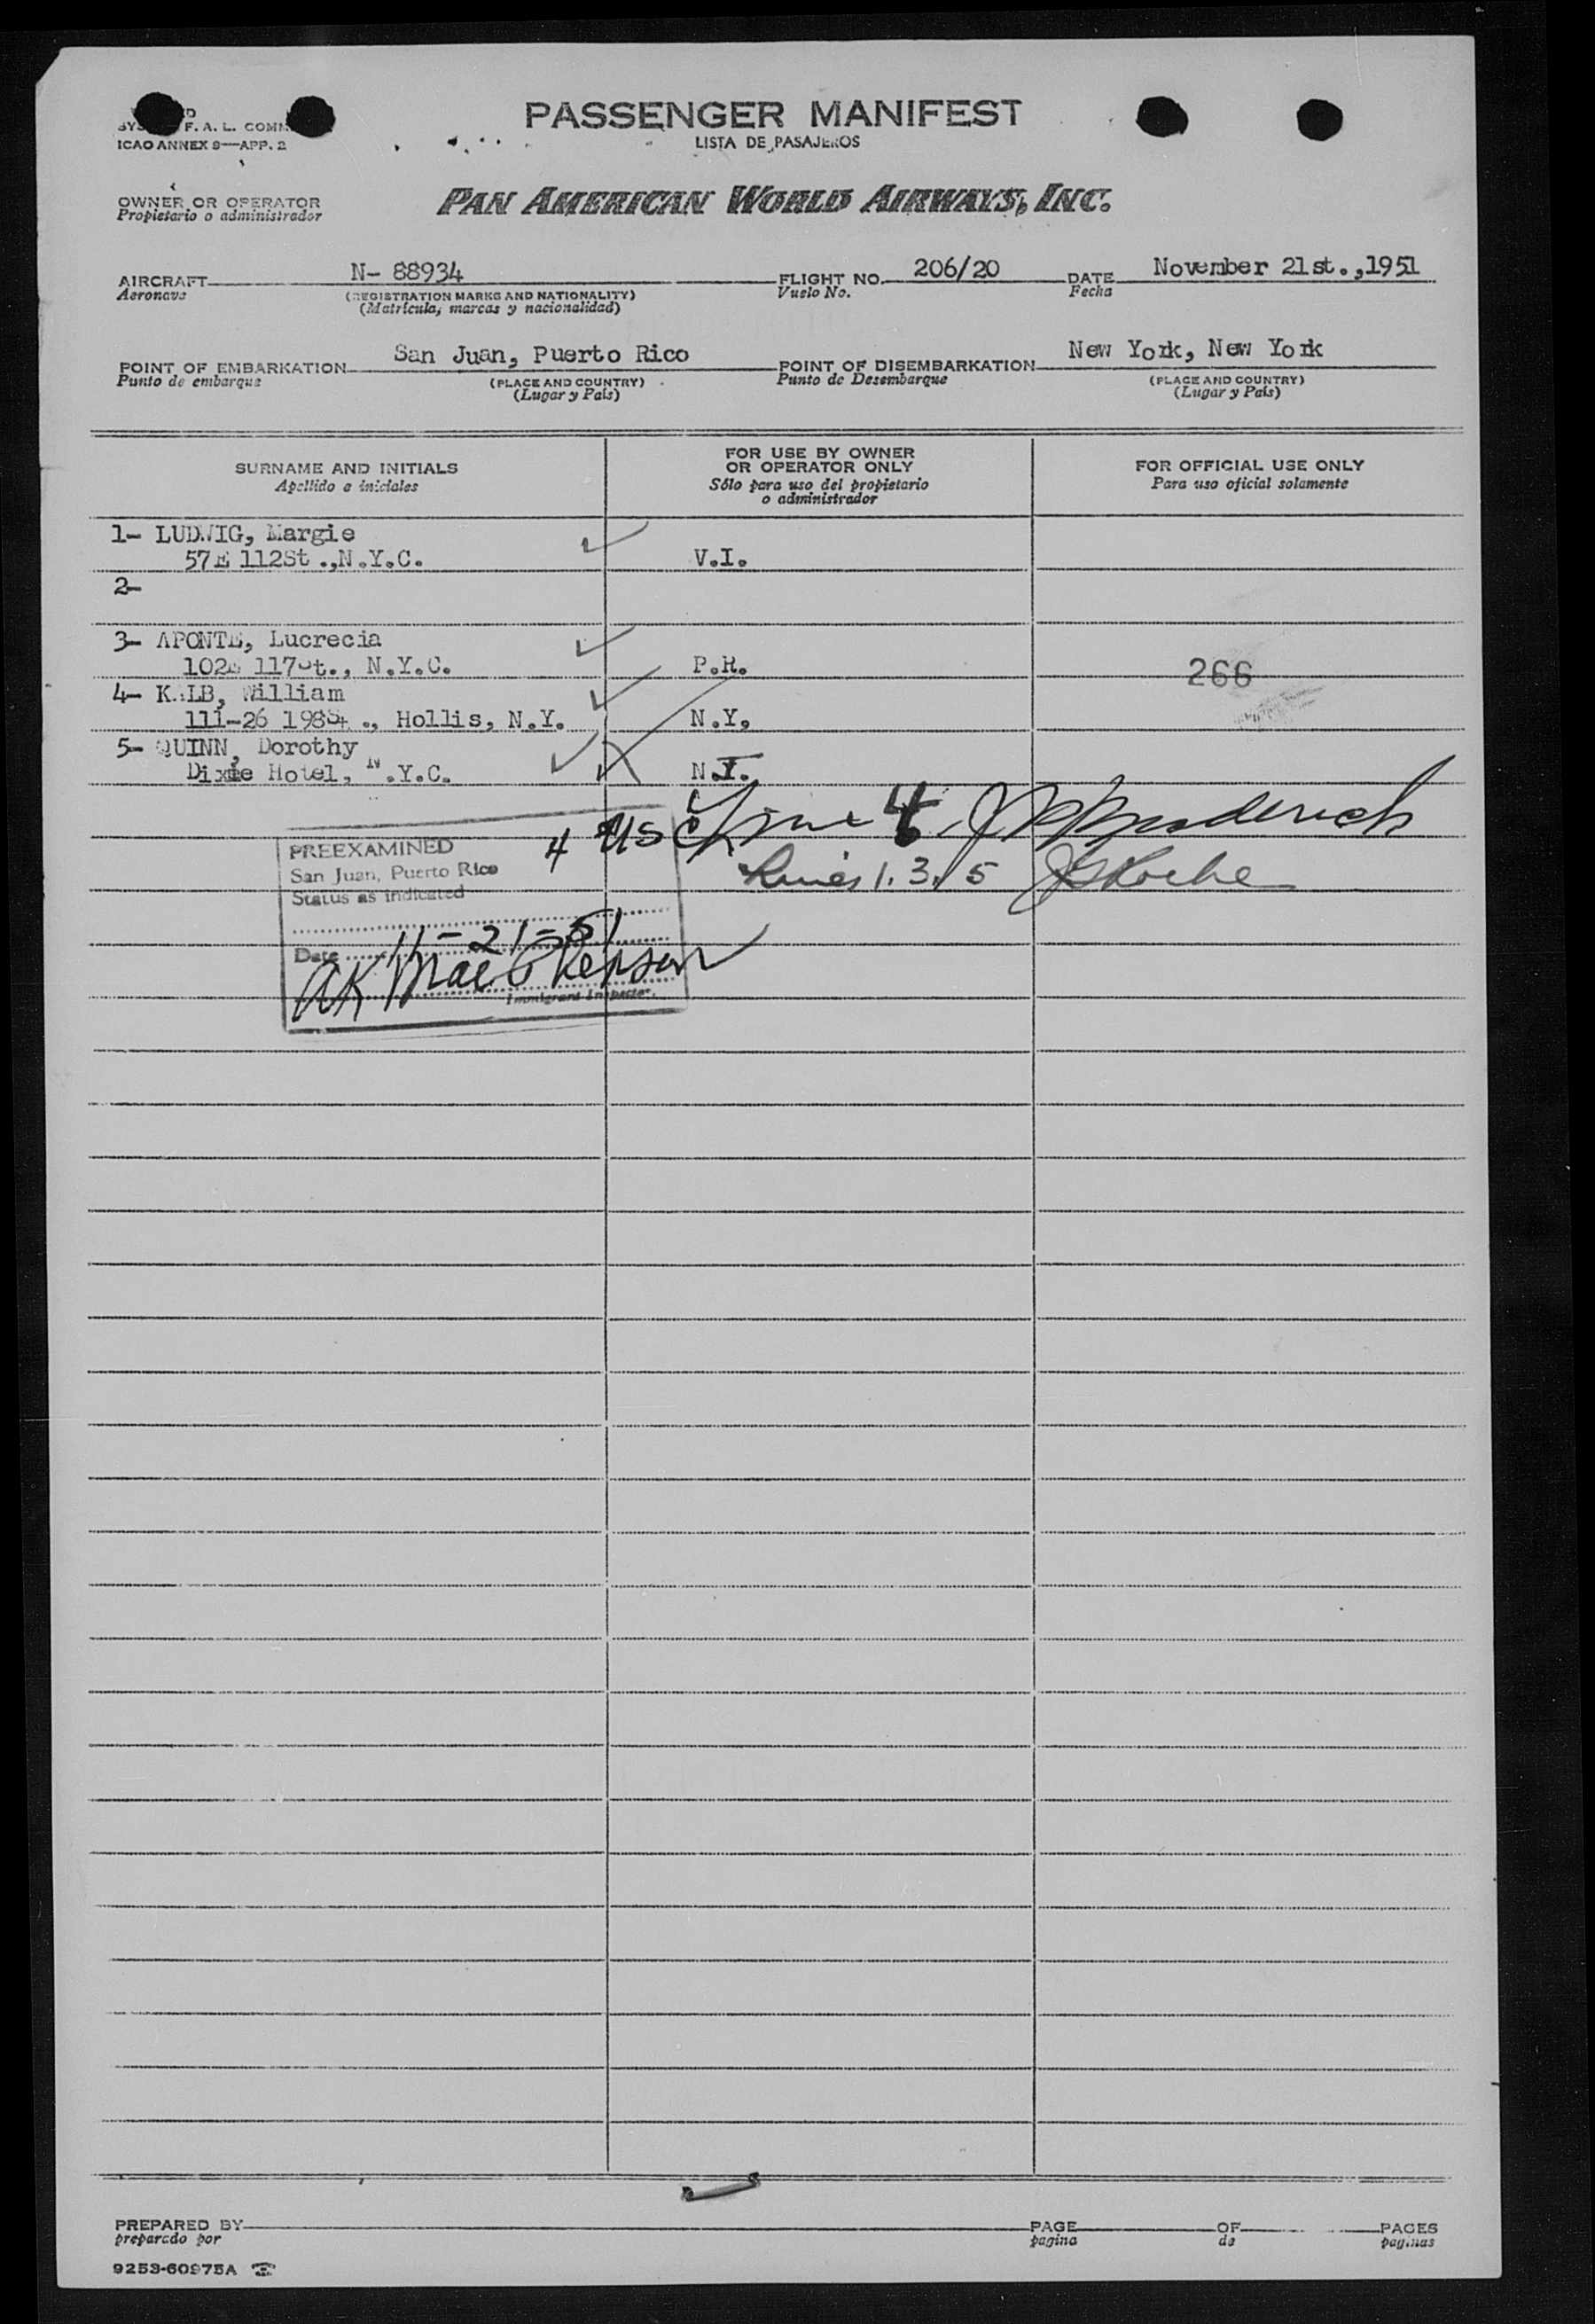 F. A. L. COMM
ICAO ANNEX 9—APP. 2
PASSENGER MANIFEST
LISTA DE PASAJEROS
OWNER OR OPERATOR
Propietario o administrador
PAN AMERICAN WORLD AIRWAYS, INC.
AIRCRAFT N- 88934 FLIGHT NO. 206/20 DATE November 21st.,1951
Aeronave (REGISTRATION MARKS AND NATIONALITY) Vuelo No. Fecha
(Matrícula, marcas y nacionalidad)
POINT OF EMBARKATION San Juan, Puerto Rico POINT OF DISEMBARKATION New York, New York
Punto de embarque (PLACE AND COUNTRY) Punto de Desembarque (PLACE AND COUNTRY)
(Lugar y País) (Lugar y País)
SURNAME AND INITIALS
Apellido e iniciales
FOR USE BY OWNER
OR OPERATOR ONLY
Sólo para uso del propietario
o administrador
FOR OFFICIAL USE ONLY
Para uso oficial solamente
1- LUDWIG, Margie
57E 112St.,N.Y.C. V.I.
2-
3- APONTE, Lucrecia
102E 117St., N.Y.C. P.R. 266
4- KALB, William
111-26 198St., Hollis, N.Y. N.Y,
5- QUINN, Dorothy
Dixie Hotel, N.Y.C. N.Y.
4 USC Line 4
Lines 1. 3. 5
PREEXAMINED
San Juan, Puerto Rico
Status as indicated
Date 11-21-51
Immigrant Inspector.
PREPARED BY PAGE OF PAGES
preparado por pagina de paginas
9253-60975A